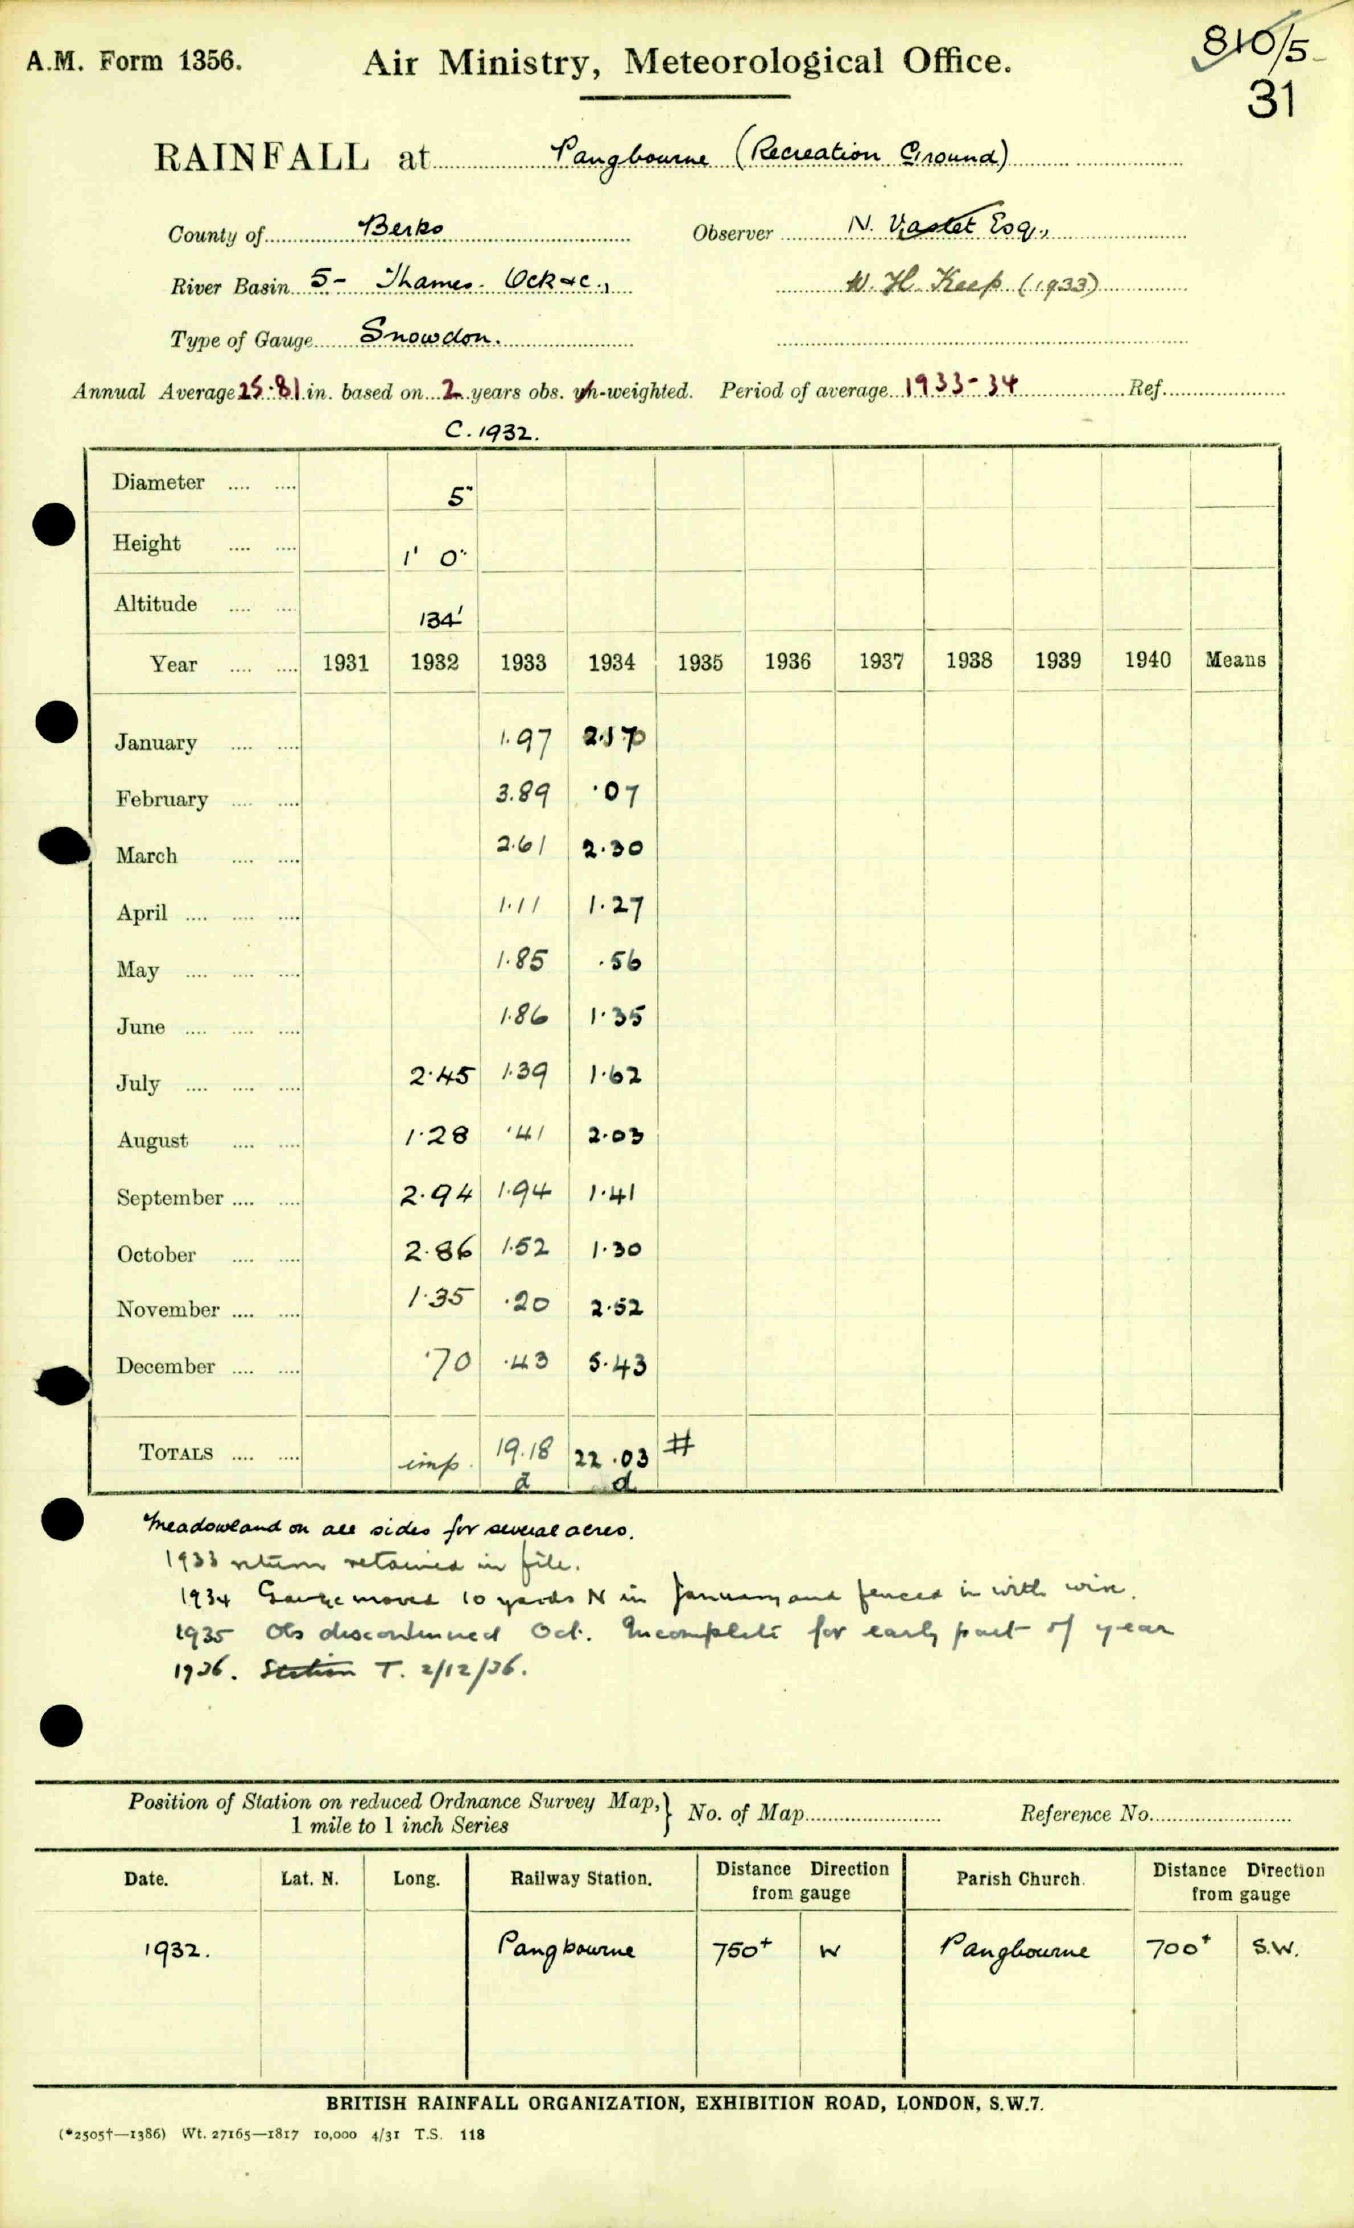 A.M. Form 1356. Air Ministry, Meteorological Office. 810/5
31
RAINFALL at Pangbourne (Recreation Ground)
County of Berks Observer N. Esq.,
River Basin 5- Thames. Ock &c., W. H. Keep (1933)
Type of Gauge Snowdon.
Annual Average 25.81 in. based on 2 years obs. un-weighted. Period of average 1933-34 Ref.
C. 1932.
Diameter 5"
Height 1' 0"
Altitude 134'
Year 1931 1932 1933 1934 1935 1936 1937 1938 1939 1940 Means
January 1.97 2.17
February 3.89 .07
March 2.61 2.30
April 1.11 1.27
May 1.85 .56
June 1.86 1.35
July 2.45 1.39 1.62
August 1.28 .41 2.03
September 2.94 1.94 1.41
October 2.86 1.52 1.30
November 1.35 .20 2.52
December .70 .43 5.43
TOTALS imp. 19.18 22.03 #
d d
Meadowland on all sides for several acres.
1933 return retained in file.
1934 Gauge moved 10 yards N in January and fenced in with wire.
1935 Obs discontinued Oct. Incomplete for early part of year
1936. Station T. 2/12/36.
Position of Station on reduced Ordnance Survey Map, } No. of Map Reference No.
1 mile to 1 inch Series
Date. Lat. N. Long. Railway Station. Distance Direction from gauge Parish Church. Distance Direction from gauge
1932. Pangbourne 750+ W Pangbourne 700+ S.W.
BRITISH RAINFALL ORGANIZATION, EXHIBITION ROAD, LONDON, S.W.7.
(*2505†—1386) Wt. 27165—1817 10,000 4/31 T.S. 118